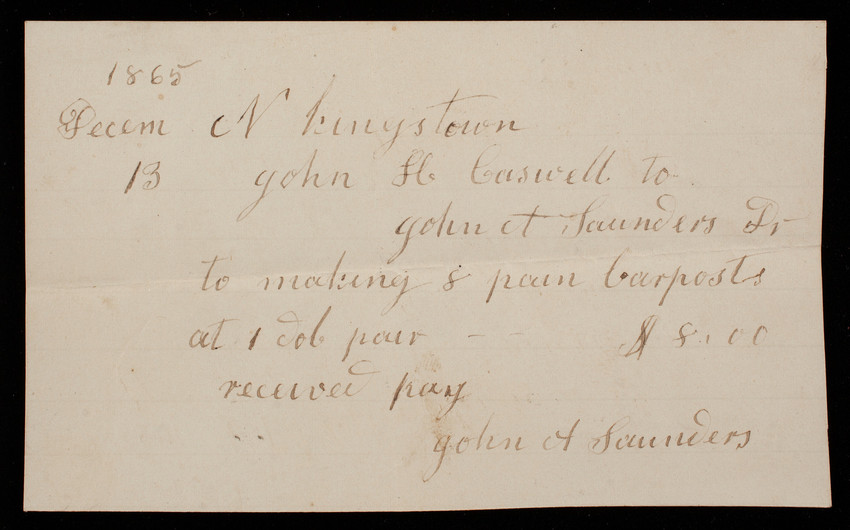 1865
Decem N kingstown
13 john H Caswell to
john A Saunders Dr
to making 8 pair barposts
at 1 dol pair - - $ 8.00
received pay
john A Saunders